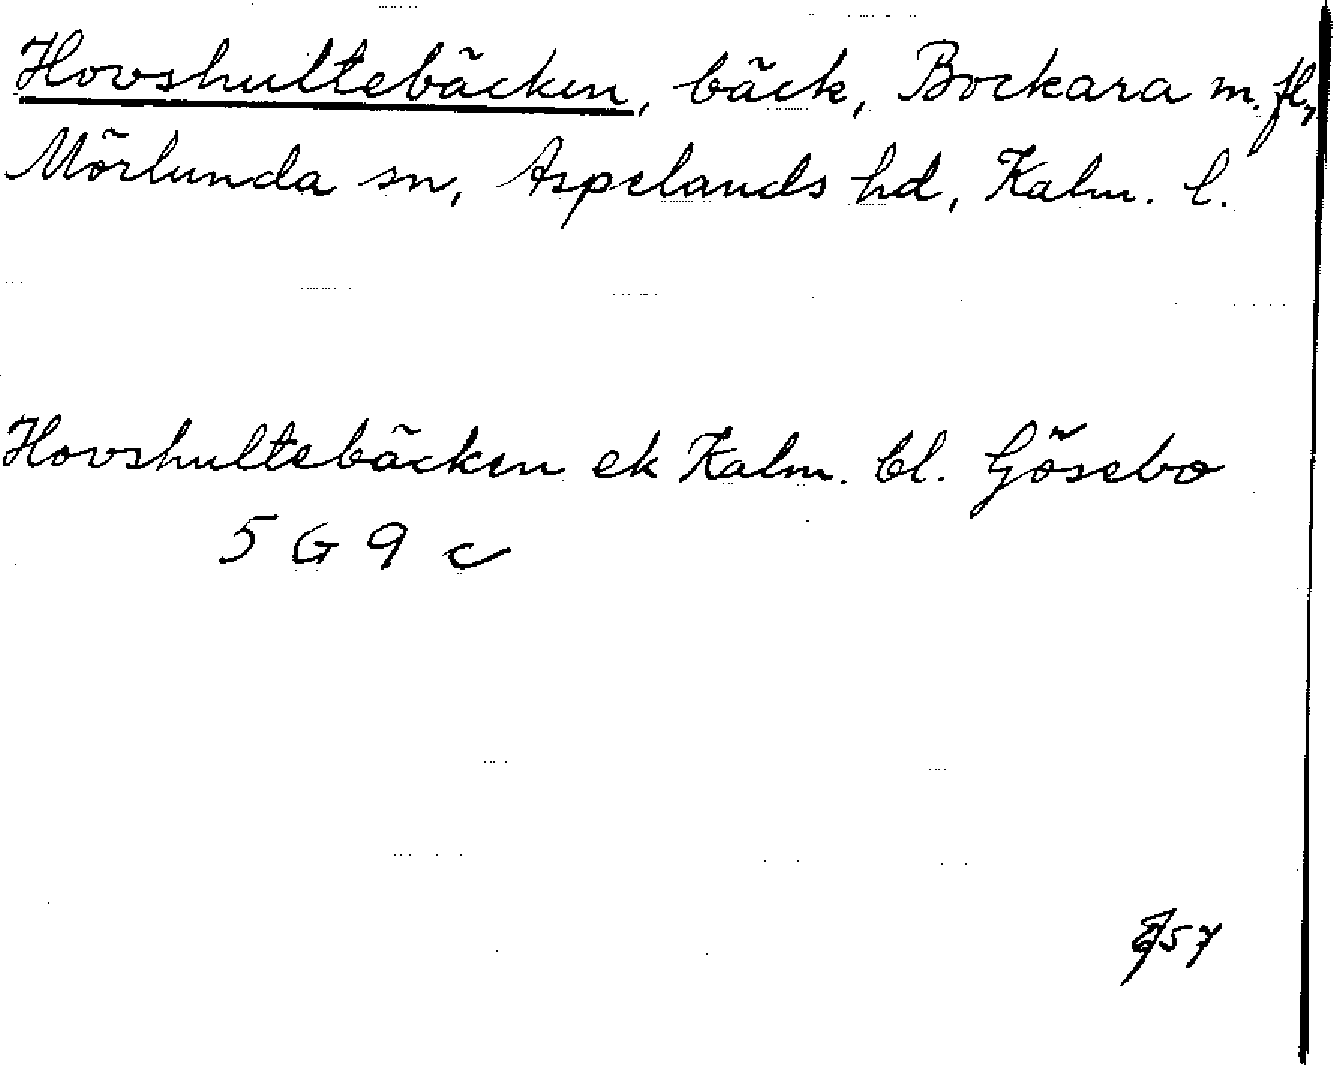 Hovshultebäcken, bäck, Bockara m. fl.,
Mörlunda sn, Aspelands hd, Kalm. l.
Hovshultebäcken ek Kalm. bl. Gösebo
5 G 9 c
57